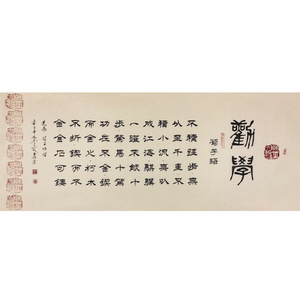 勸學
荀子語
不積跬步無
以至千里不
積小流無以
成江海騏驥
一躍不能十
步駑馬十駕
功在不舍鍥
而舍之朽木
不折鍥而不
舍金石可鏤